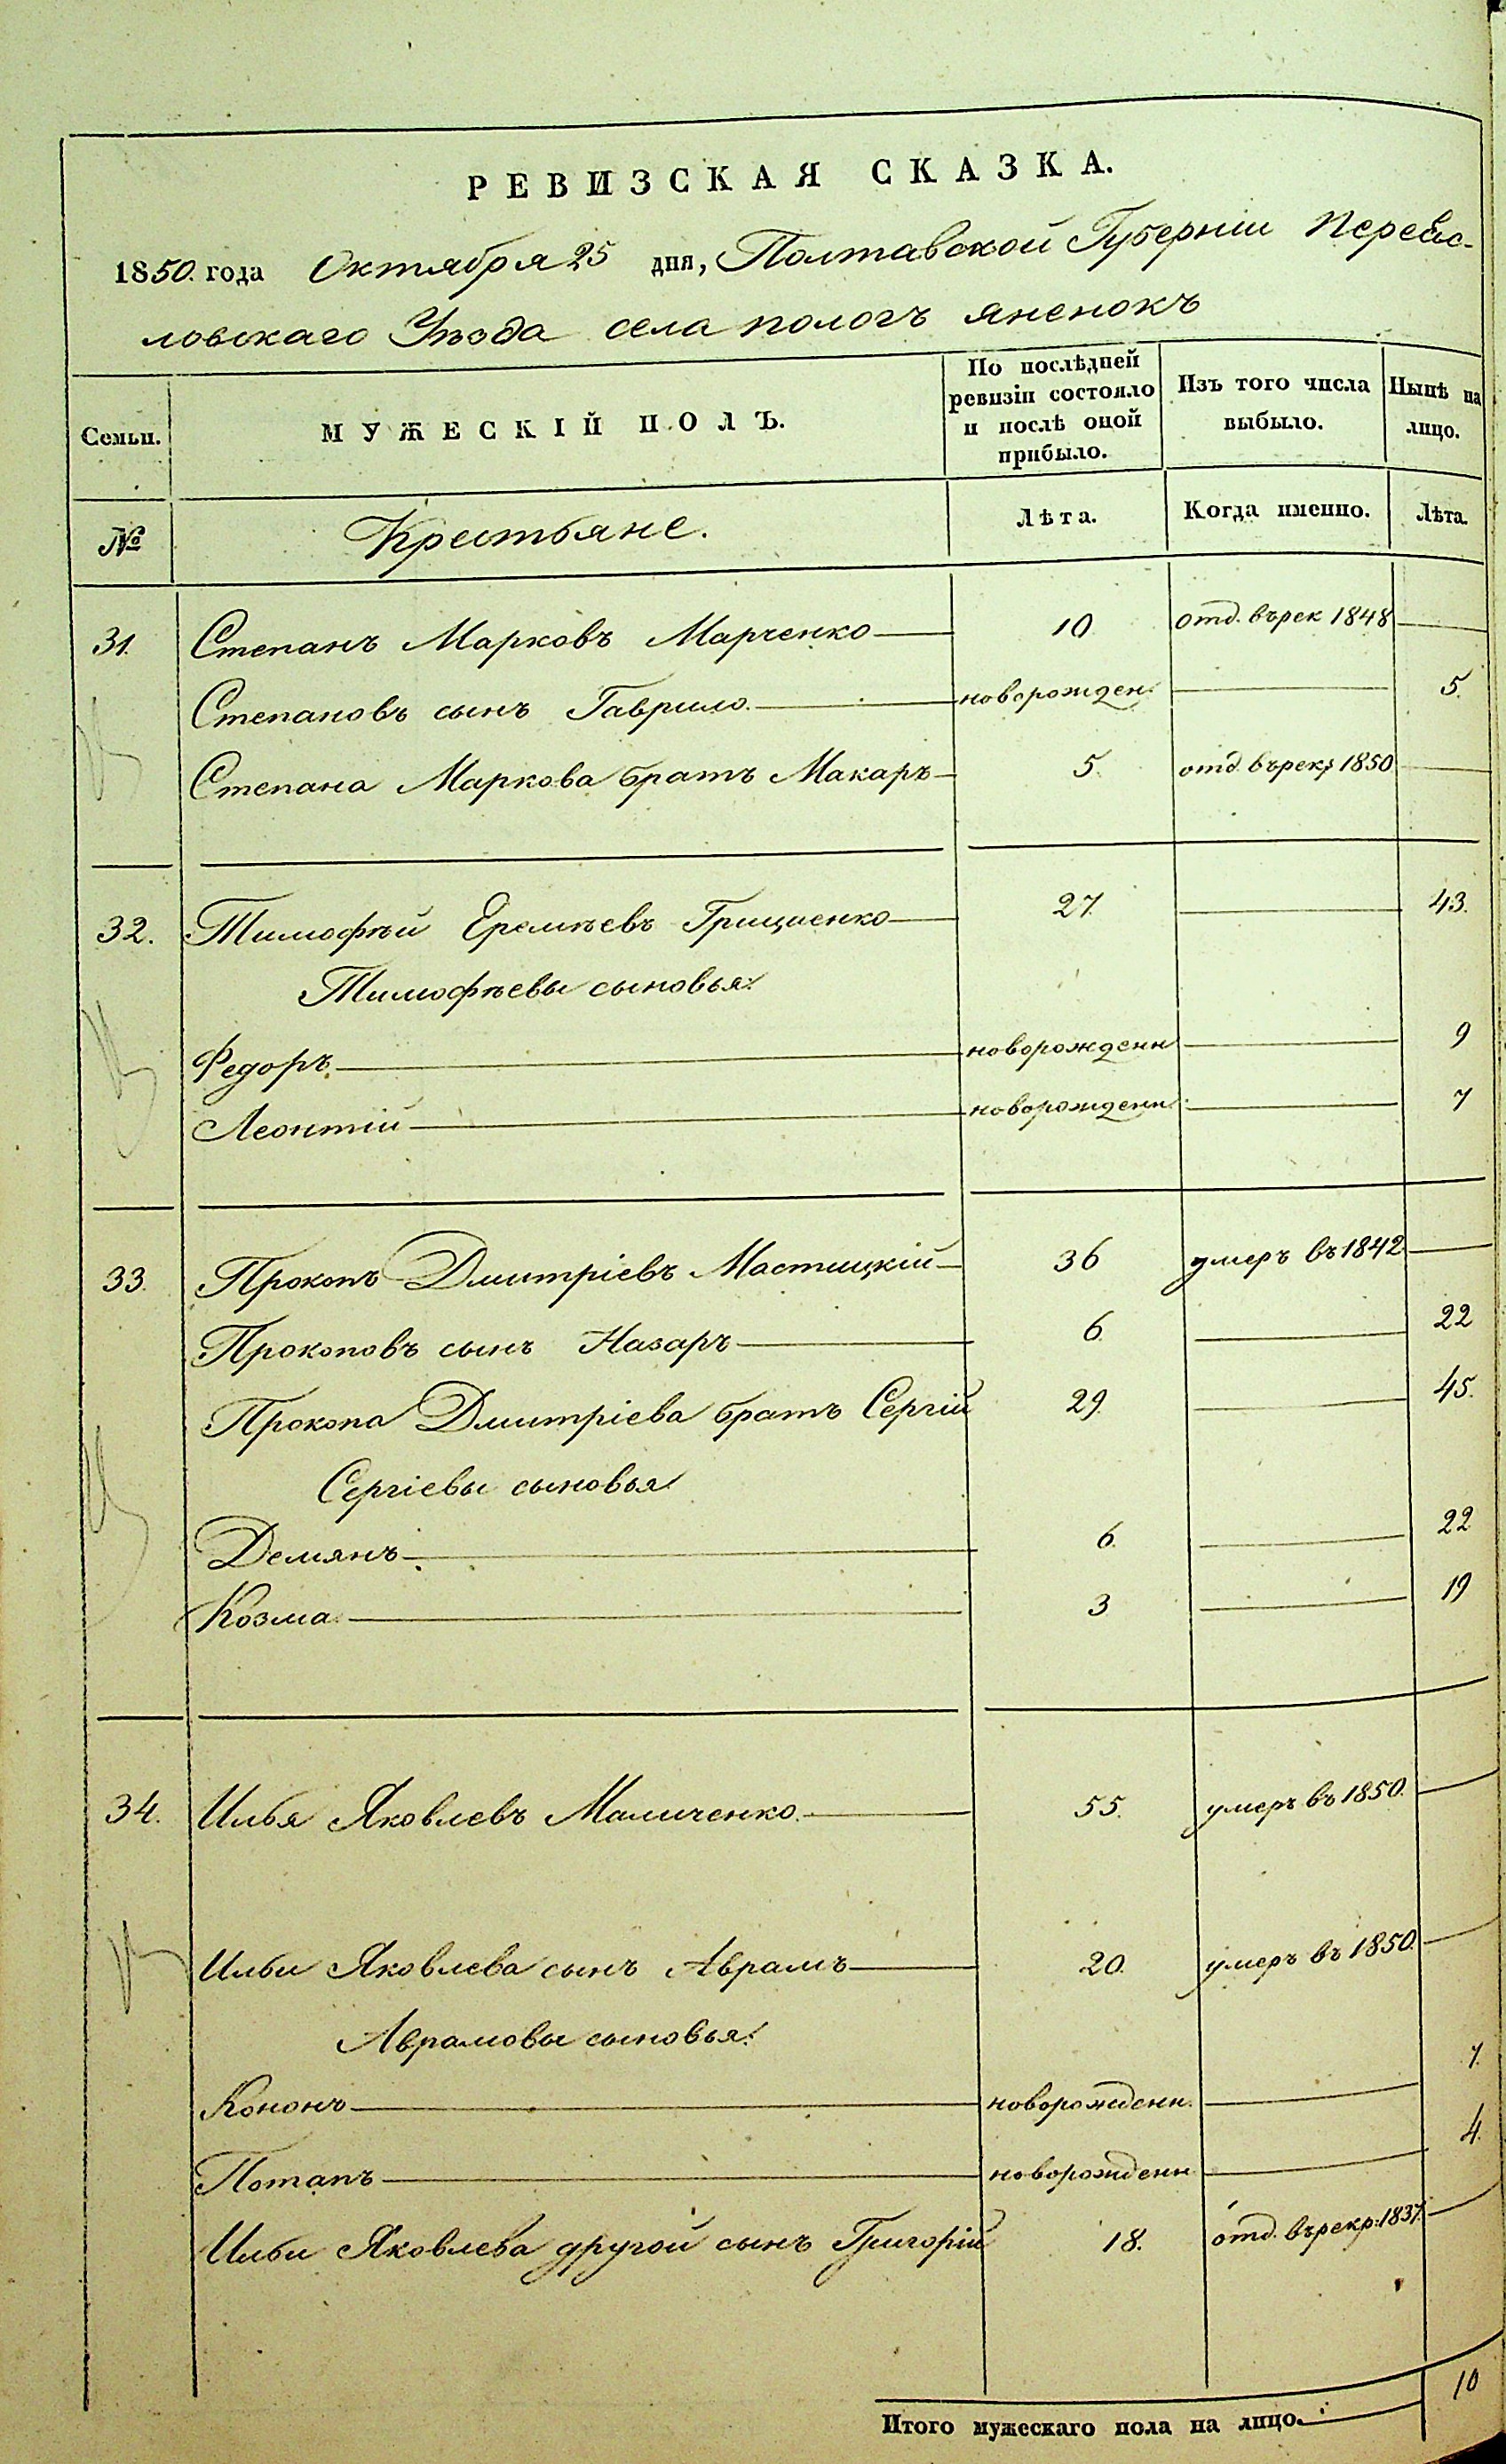 РЕВИЗСКАЯ СКАЗКА.
1850. года Октября 25 дня, Полтавской Губерніи Переяс-
ловскаго Уѣзда села пологъ яненокъ
Семьи. МУЖЕСКІЙ ПОЛЪ. По послѣдней ревизіи состояло и послѣ оной прибыло. Изъ того числа выбыло. Нынѣ на лицо.
№ Крестьяне. Лѣта. Когда именно. Лѣта.
31. Степанъ Марковъ Марченко 10 отд. въ рек 1848
Степановъ сынъ Гаврило. новорожден. 5.
Степана Маркова братъ Макаръ 5. отд. въ рекр 1850
32. Тимофѣй Еремѣевъ Грицаенко 27. 43.
Тимофѣевы сыновья:
Федоръ. новорожденн 9
Леонтій новорожденн. 7
33. Прокопъ Дмитріевъ Мастицкій 36 умеръ въ 1842
Прокоповъ сынъ Назаръ 6. 22
Прокопа Дмитріева братъ Сергій 29. 45.
Сергіевы сыновья
Демянъ. 6. 22
Козма. 3 19
34. Илья Яковлевъ Маличенко. 55. умеръ въ 1850.
Ильи Яковлева сынъ Аврамъ 20. умеръ въ 1850.
Аврамовы сыновья:
Кононъ новорожденн. 7.
Потапъ новорожденн 4.
Ильи Яковлева другой сынъ Григорій 18. отд. въ рекр: 1837.
Итого мужескаго пола на лицо. 10